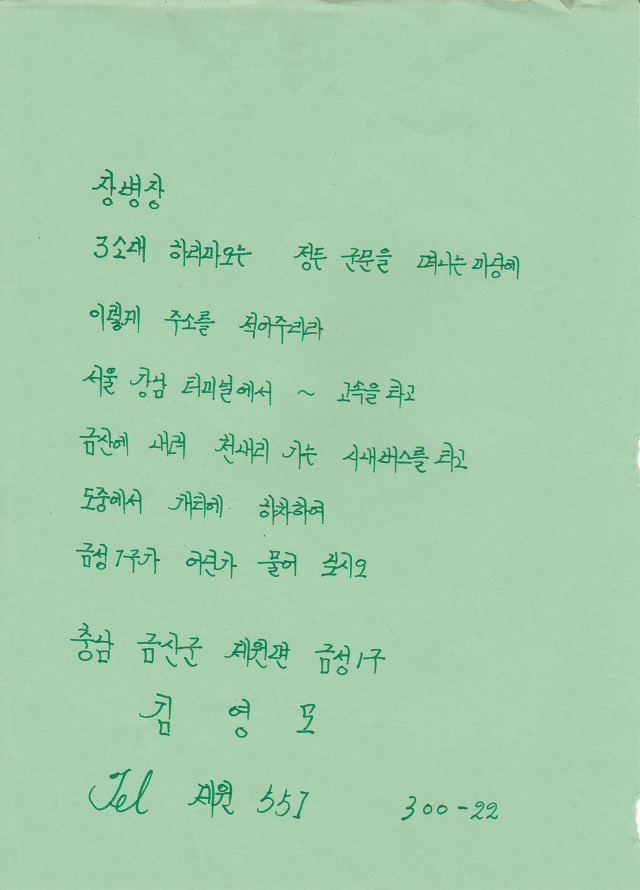 장병장
3소대 하리마오는 정든 군문을 떠나는 마당에
이렇게 주소를 적어주리라
서울 강남 터미널에서 ~ 고속을 타고
금산에 내려 천내리 가는 시내버스를 타고
도중에서 개티에 하차하여
금성1구가 어딘가 물어 보시오
충남 금산군 제원면 금성1구
김 영 모
Tel 제원 557 300-22